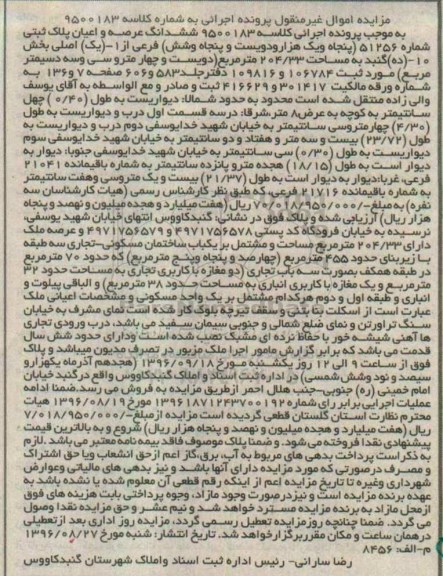 مزایده اموال غیرمنقول پرونده اجرائی به شماره کلاسه ۹۵۰۰۱۸۳
به موجب پرونده اجرائی کلاسه ۹۵۰۰۱۸۳ ششدانگ عرصه و اعیان پلاک ثبتی
شماره ۵۱۲۵۶ (پنجاه ویک هزارودویست و پنجاه وشش) فرعی از۱-(یک) اصلی بخش
۱۰-(ده)گنبد به مساحت ۲۰۴/۳۳ مترمربع(دویست و چهار مترو سی وسه دسیمتر
مربع) مورد ثبت ۱۰۶۷۸۴ و ۱۰۹۸۱۶ دفترجلد۵۸۳ و۶۰۶ صفحه ۷ و۱۳۶ به
شماره ورقه مالکیت ۳۰۱۴۱۷ و ۴۱۶۶۲۹ ثبت و صادر و مع الواسطه به آقای یوسف
والی زاده منتقل شده است محدود به حدود شمالا: دیواریست به طول (۰/۴۰) چهل
سانتیمتر به کوچه به عرض۸ متر،شرقا: درسه قسمت اول درب و دیواریست به طول
(۴/۳۰) چهارمتروسی سانتیمتر به خیابان شهید خدایوسفی دوم درب و دیواریست به
طول (۲۳/۷۲) بیست و سه متر و هفتاد و دو سانتیمتر به خیابان شهید خدایوسفی سوم
دیواریست به طول (۰/۳۰) سی سانتیمتر به خیابان شهید خدایوسفی جنوبا: دیوار به
دیوار است به طول (۱۸/۱۵) هجده متر و پانزده سانتیمتر به شماره باقیمانده ۲۱۰۴۱
فرعی، غربا:دیوار به دیوار است به طول (۲۱/۳۷) بیست و یک متروسی وهفت سانتیمتر
به شماره باقیمانده ۲۱۷۱۶ فرعی، که طبق نظر کارشناس رسمی (هیات کارشناسان سه
نفره) به مبلغ-/۷/۰۱۸/۹۵۰/۰۰۰ ریال(هفت میلیارد و هجده میلیون و نهصد و پنجاه
هزار ریال) آرزیابی شده و پلاک فوق در نشانی: گنبدکاووس انتهای خیابان شهید یوسفی،
نرسیده به خیابان فرودگاه کد پستی ۴۹۷۱۷۵۶۵۷۸ و ۴۹۷۱۷۵۶۵۷۹ و عرصه ملک
دارای ۲۰۴/۳۳ مترمربع مساحت و مشتمل بر یکباب ساختمان مسکونی-تجاری سه طبقه
با زیربنای حدود ۴۵۵ مترمربع (چهارصد و پنجاه وپنج مترمربع) که حدود ۷۰ مترمربع
در طبقه همکف بصورت سه باب تجاری (دو مغازه با کاربری تجاری به مساحت حدود ۳۲
مترمربع و یک مغازه با کاربری انباری به مساحت حدود ۳۸ مترمربع) و الباقی پیلوت و
انباری و طبقه اول و دوم هرکدام مشتمل بر یک واحد مسکونی و مشخصات اعیانی ملک
عبارت است از اسکلت بنا بتنی و سقف تیرچه بلوک کار شده است نمای مشرف به خیابان
سنگ تراورتن و نمای ضلع شمالی و جنوبی سیمان سفید می باشد، درب ورودی تجاری
ها آهنی شیشه خور با حفاظ نرده ای مشبک نصب شده است ودارای حدود شش سال
قدمت می باشد که برابر گزارش مامور اجرا ملک مزبور در تصرف مدیون میباشد و پلاک
فوق از ساعت ۹ الی ۱۲ روز یکشنبه مورخ ۱۳۹۶/۰۹/۱۸ (هجدهم آذرماه یکهزارو
سیصد و نود وشش شمسی) در اداره ثبت اسناد و املاک گنبدکاووس واقع در گنبد خیابان
امام خمینی (ره) جنوبی-جنب هلال احمر ازطریق مزایده به فروش می رسد.ضمنا ادامه
عملیات اجرایی برابر رای شماره ۱۳۹۶۱۸۷۱۲۴۳۷۰۰۰۱۹۲ مورخ ۱۳۹۶/۰۸/۱۹ هیات
محترم نظارت استان گلستان قطعی گردیده است مزایده ازمبلغ-/۷/۰۱۸/۹۵۰/۰۰۰
ریال (هفت میلیارد و هجده میلیون و نهصد و پنجاه هزار ریال) شروع و به بالاترین قیمت
پیشنهادی نقدا فروخته می شود. و ضمنا پلاک موصوف فاقد بیمه نامه معتبر می باشد .لازم
به ذکر است پرداخت بدهی های مربوط به آب، برق،گاز اعم ازحق انشعاب ویا حق اشتراک
و مصرف درصورتی که مورد مزایده دارای آنها باشد و نیز بدهی های مالیاتی وعوارض
شهرداری وغیره تا تاریخ مزایده اعم از اینکه رقم قطعی آن معلوم شده یا نشده باشد به
عهده برنده مزایده است و نیزدرصورت وجود مازاد، وجوه پرداختی بابت هزینه های فوق
ازمحل مازاد به برنده مزایده مسترد خواهد شد و نیم عشر و حق مزایده نقدا وصول
می گردد. ضمنا چنانچه روزمزایده تعطیل رسمی گردد، مزایده روز اداری بعد ازتعطیلی
درهمان ساعت و مکان مقرربرگزارخواهد شد. تاریخ انتشار: شنبه مورخ ۱۳۹۶/۰۸/۲۷
م-الف: ۸۴۵۶
رضا سارانی- رئیس اداره ثبت اسناد واملاک شهرستان گنبدکاووس